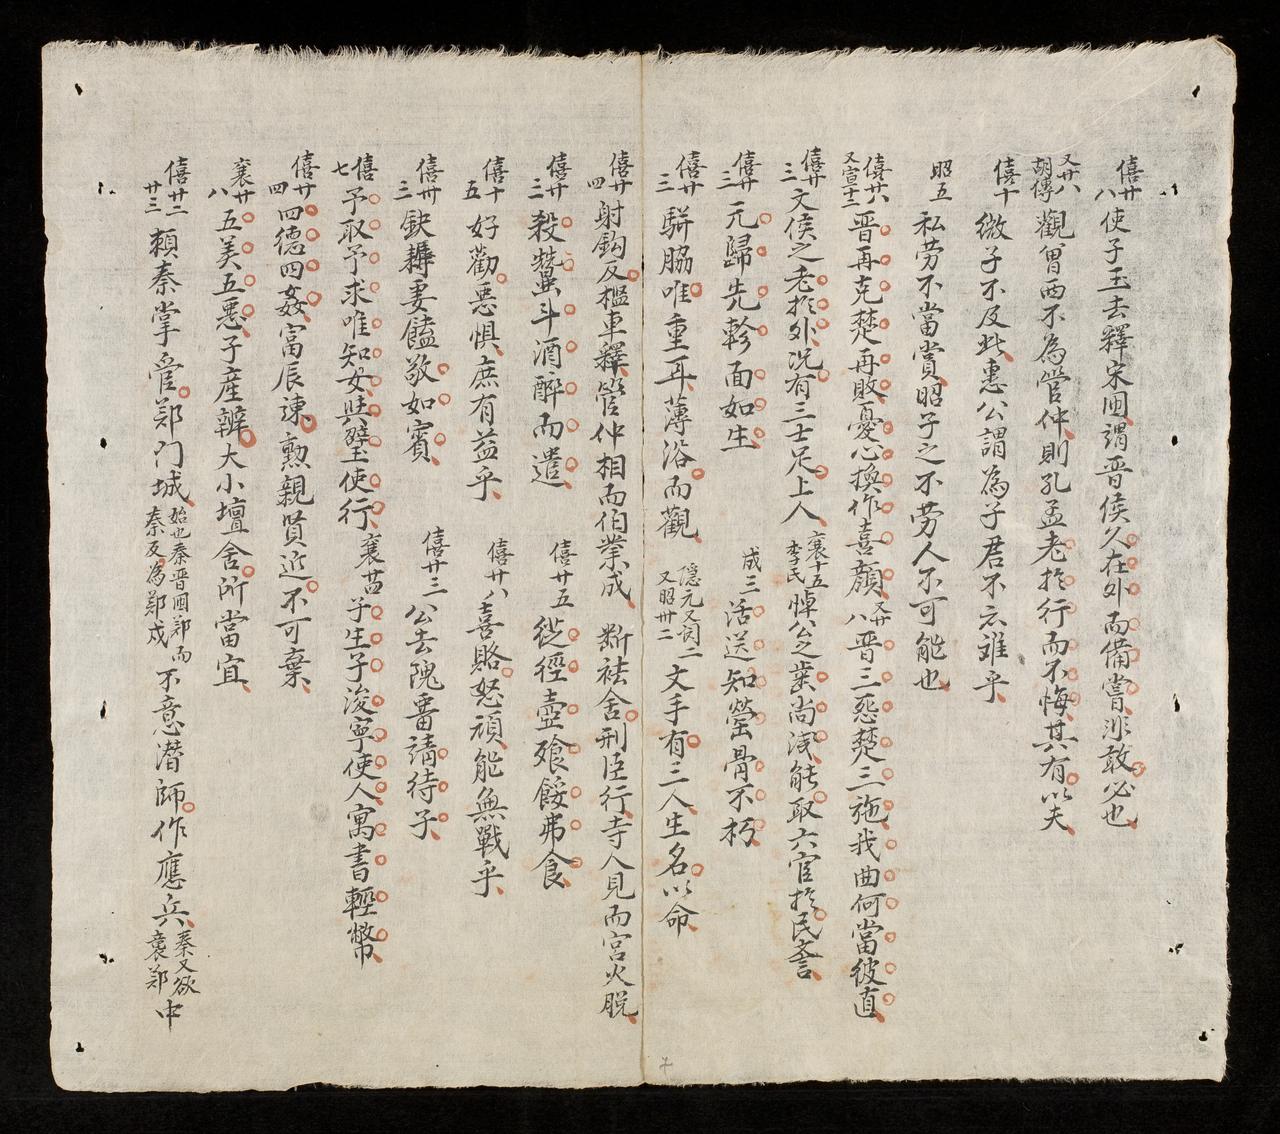 僖廿八 使子玉去釋宋囯謂晋侯久在外而備嘗非敢必也
又廿八 胡傳 觀曾西不為管仲則孔孟老扵行而不悔其有以夫
僖十 微子不及此惠公謂為子君不亦难乎
昭五 私劳不當賞昭子之不劳人不可能也
僖廿八 又宣十二 晋再克楚再敗憂心換作喜顔 又廿八 晋三怨楚三施我曲何當彼直
僖廿三 文侯之老扵外况有三士足上人 襄十五 李氏 悼公之歯尚浅能取六官扵民誉言
僖廿三 元歸先軫面如生 成三 活送知罃骨不朽
僖廿三 駢脇唯重耳薄浴而觀 隱元又闵二 又昭卅二 文手有三人生名以命
僖廿四 射鈎反檻車釋管仲相而伯業成 斷袪舍刑臣行寺人見而宫火脱
僖廿三 殺蚕斗酒醉而遣 僖廿五 從徑壺飱餒弗食
僖十五 好勸惡惧庶有益乎 僖廿八 喜賂怒頑能無戰乎
僖卅三 鈌耨妻饁敬如賓 僖廿三 公去隗季請待子
僖七 予取予求唯知女與璧使行 襄廿四 子生子浚寧使人寓書輕幣
僖廿四 四德四姦富辰諫勲親賢近不可棄
襄廿八 五美五悪子産辨大小壇舍所當宜
僖卅二 卅三 頼秦掌管郑門城 始也秦晋囲郑而秦反為郑戍 不意潜師作應兵 秦又欲襲郑 中